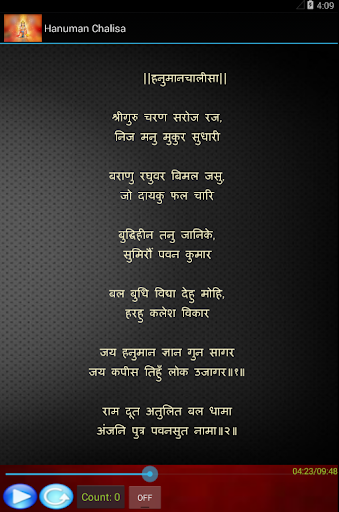 4:09
Hanuman Chalisa
||हनुमानचालीसा||
श्रीगुरु चरण सरोज रज,
निज मनु मुकुर सुधारी
बराणु रघुवर बिमल जसु,
जो दायकु फल चारि
बुद्धिहीन तनु जानिके,
सुमिरौं पवन कुमार
बल बुधि विद्या देहु मोहि,
हरहु कलेश विकार
जय हनुमान ज्ञान गुन सागर
जय कपीस तिहुँ लोक उजागर॥१॥
राम दूत अतुलित बल धामा
अंजनि पुत्र पवनसुत नामा॥२॥
04:23/09:48
Count: 0
OFF